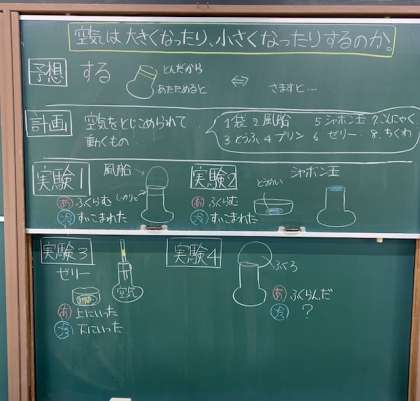 空気は大きくなったり、小さくなったりするのか。
予想 する とんだから
あたためると ⇔ さますと…
計画 空気をとじこめられて
動くもの
1袋 2風船 5シャボン玉 7.こんにゃく
3とうふ 4プリン 6 ゼリー 8.ちくわ
実験1 風船
あ ふくらむ
さ すいこまれた
実験2 シャボン玉
あ ふくらむ
さ すいこまれた
実験3
ゼリー
空気
あ 上にいった
さ 下にいった
実験4
ふくろ
あ ふくらんだ
さ ?